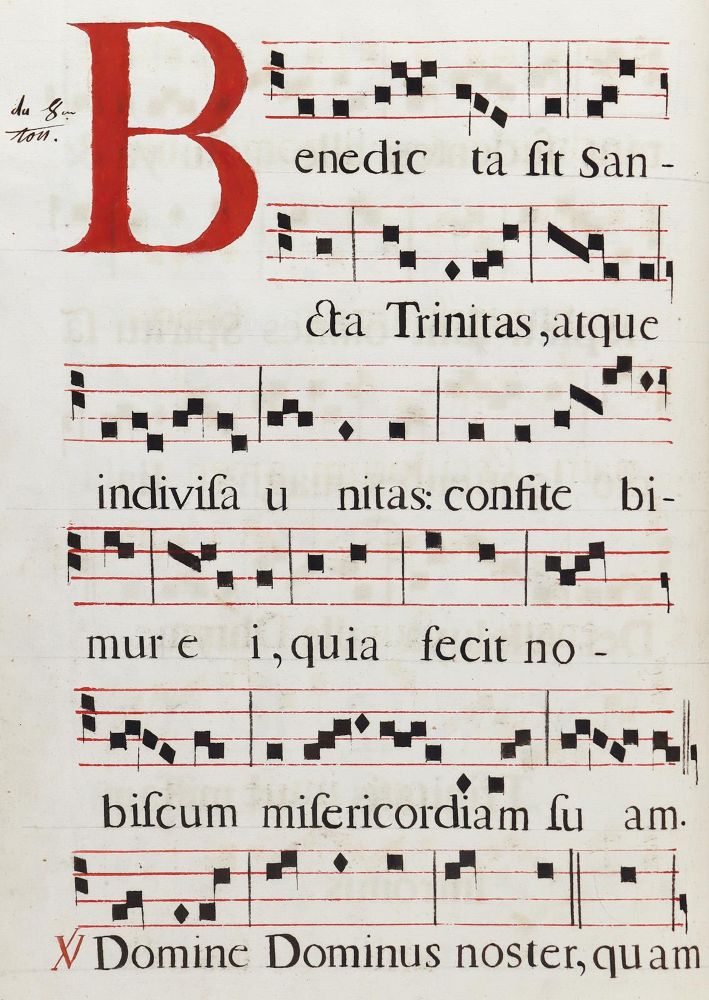 du 8.me
ton.
Benedic ta ſit San-
cta Trinitas, atque
indiviſa u nitas: confite bi-
mur e i, quia fecit no-
biſcum miſericordiam ſu am.
℣ Domine Dominus noster, quam